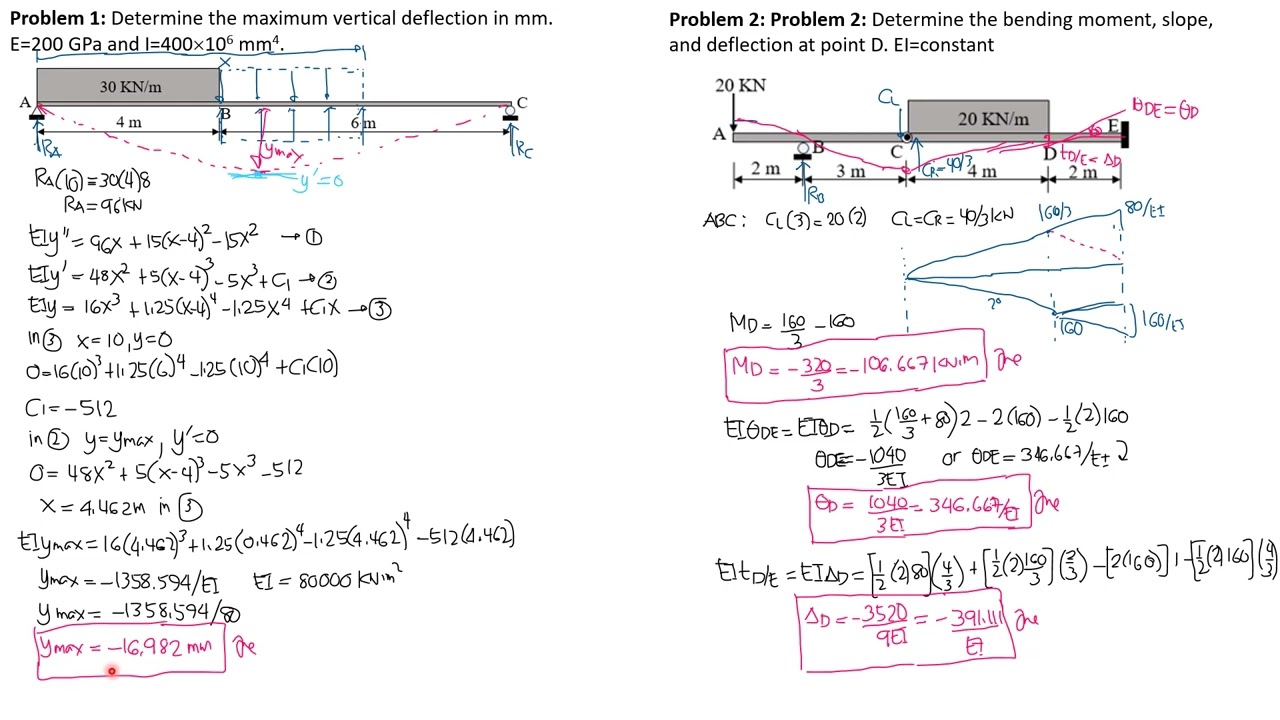 Problem 1: Determine the maximum vertical deflection in mm.
E=200 GPa and I=400×10⁶ mm⁴.
X
30 KN/m
A
B
C
4 m
6 m
RA
RC
ymax
y'=0
RA(10)=30(4)8
RA=96KN
EIy''=96x+15(x-4)²-15x² →①
EIy'=48x²+5(x-4)³-5x³+C₁→②
EIy=16x³+1.25(x-4)⁴-1.25x⁴+C₁x→③
in③ x=10,y=0
0=16(10)³+1.25(6)⁴-1.25(10)⁴+C₁(10)
C₁=-512
in② y=ymax, y'=0
0=48x²+5(x-4)³-5x³-512
x=4.462m in③
EIymax=16(4.462)³+1.25(0.462)⁴-1.25(4.462)⁴-512(4.462)
ymax=-1358.594/EI EI=80000KNm²
ymax=-1358.594/80
ymax=-16.982mm
Problem 2: Problem 2: Determine the bending moment, slope,
and deflection at point D. EI=constant
20 KN
CL
20 KN/m
θDE=θD
A
B
C
D
E
tD/E=ΔD
CR=40/3
2 m
3 m
4 m
2 m
RB
ABC: CL(3)=20(2) CL=CR=40/3KN
160/3
80/EI
2°
160
160/EI
MD=160/3-160
MD=-320/3=-106.667KN.m
EIθDE=EIθD=1/2(160/3+80)2-2(160)-1/2(2)160
θDE=-1040/3EI or θDE=346.667/EI
θD=1040/3EI=346.667/EI
EItD/E=EIΔD=[1/2(2)80](4/3)+[1/2(2)160/3](2/3)-[2(160)]1-[1/2(2)160](4/3)
ΔD=-3520/9EI=-391.111/EI